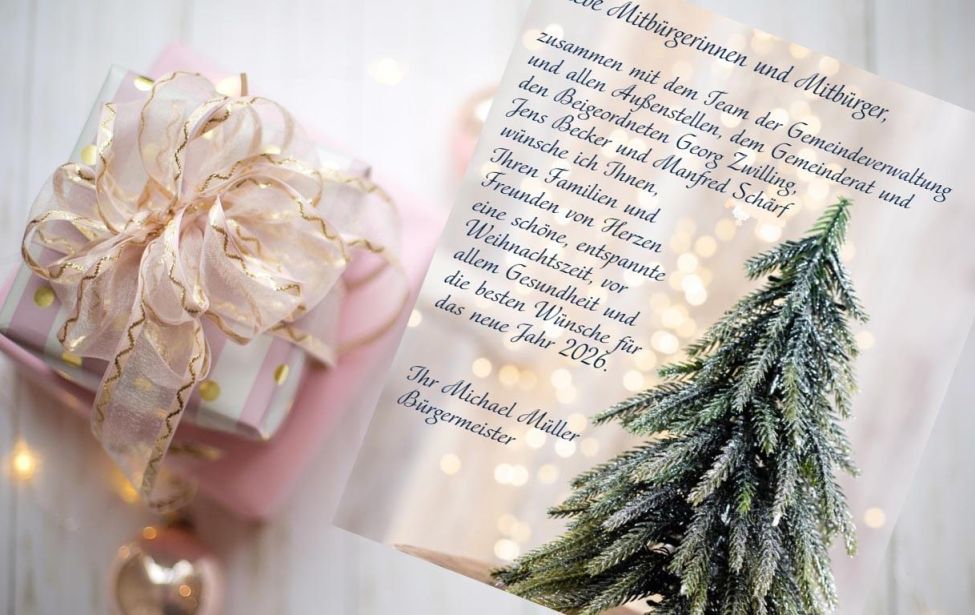 Mitbürgerinnen und Mitbürger,
zusammen mit dem Team der Gemeindeverwaltung
und allen Außenstellen, dem Gemeinderat und
den Beigeordneten Georg Zwilling,
Jens Becker und Manfred Schärf
wünsche ich Ihnen,
Ihren Familien und
Freunden von Herzen
eine schöne, entspannte
Weihnachtszeit, vor
allem Gesundheit und
die besten Wünsche für
das neue Jahr 2026.
Ihr Michael Müller
Bürgermeister